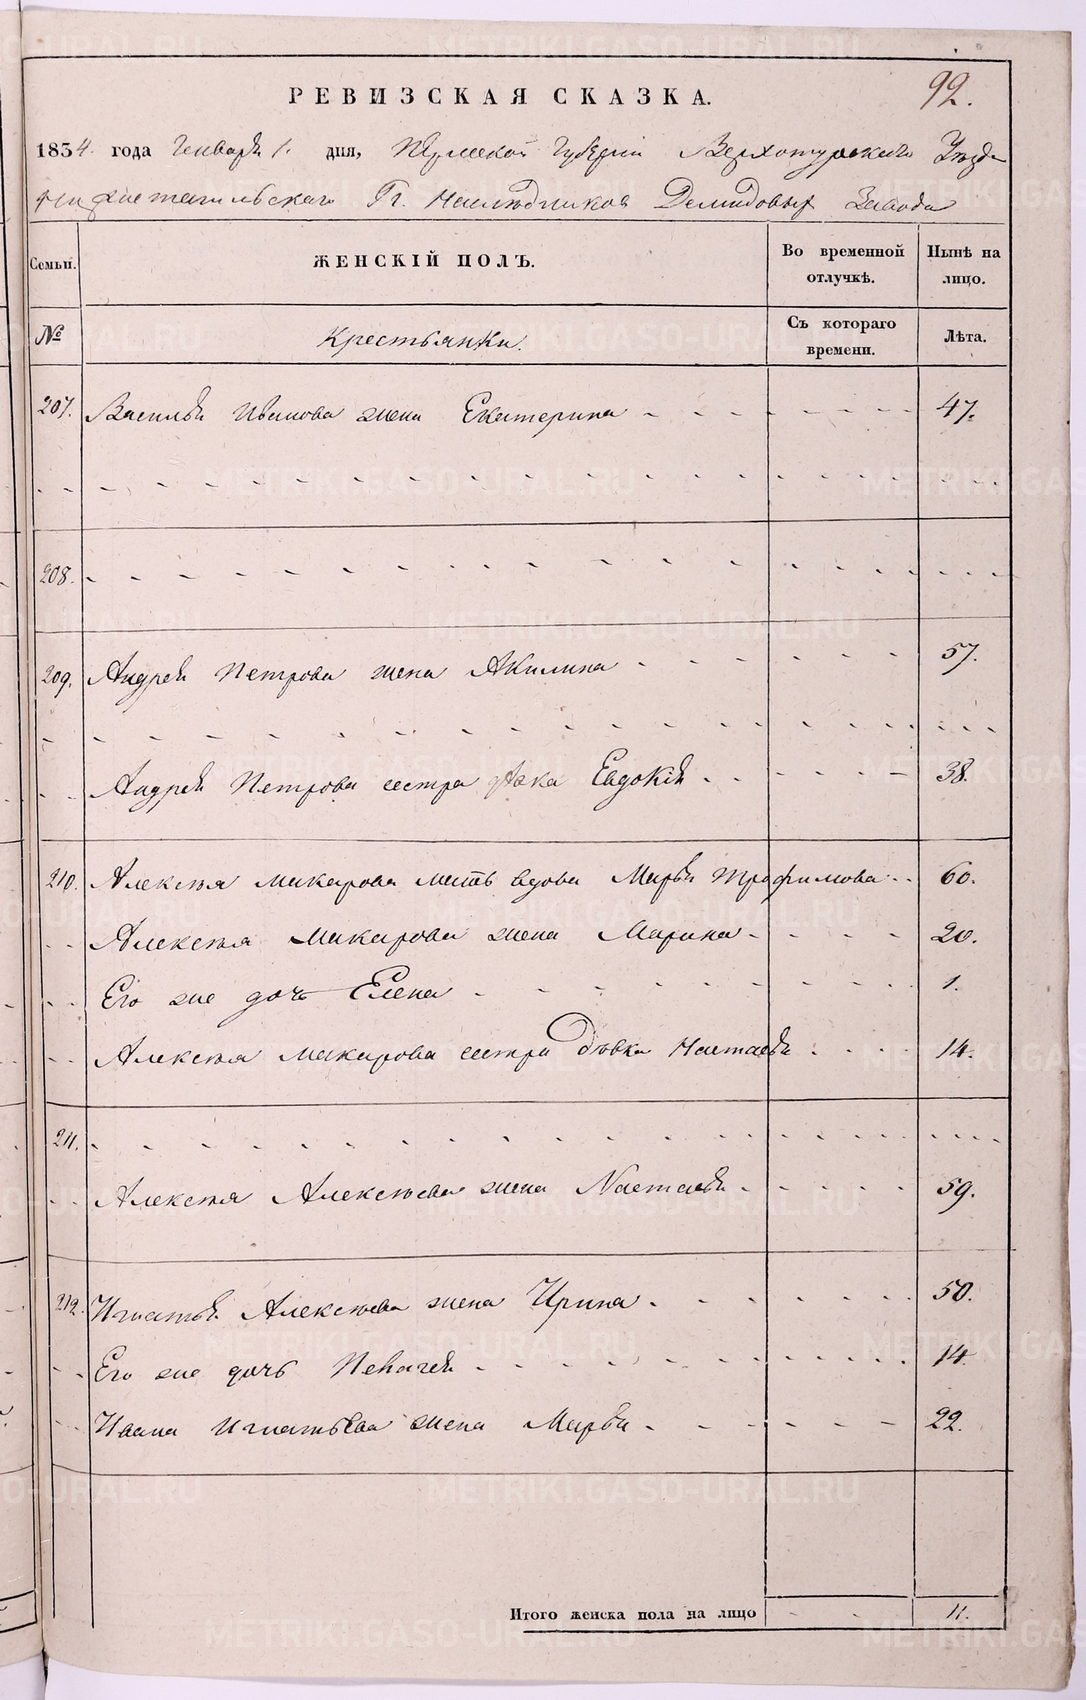 92.
РЕВИЗСКАЯ СКАЗКА.
1854. года Генваря 1. дня, Пермской Губернiи Верхотурскаго Уезда
Нижнетагильскаго Гг. Наслѣдниковъ Демидовыхъ Завода
Семьи. ЖЕНСКIЙ ПОЛЪ. Во временной отлучкѣ. Нынѣ на лицо.
№ Крестьянки. Съ котораго времени. Лѣта.
207. Василья Иванова жена Екатерина - - - 47.
208. - - -
209. Андрея Петрова жена Акилина - - - 57.
Андрея Петрова сестра дѣвка Евдокiя - - - 38.
210. Алексѣя Макарова мать вдова Марья Трофимова - - 60.
Алексѣя Макарова жена Марина - - - 20.
Его же дочь Елена - - - 1.
Алексѣя Макарова сестра дѣвка Настасья - - - 14.
211. - - -
Алексѣя Алексѣева жена Настасья - - - 59.
212. Игнатья Алексѣева жена Ирина - - - 50.
Его же дочь Пелагея - - - 14.
Ивана Игнатьева жена Марья - - - 22.
Итого женска пола на лицо - - 11.
METRIKI.GASO-URAL.RU